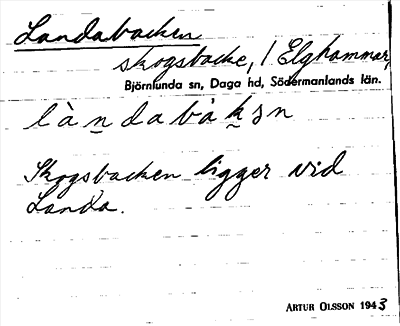 Landabacken
skogsbacke, / Elghammar,
Björnlunda sn, Daga hd, Södermanlands län.
làndabàkən
Skogsbacken ligger vid
Landa.
ARTUR OLSSON 1943